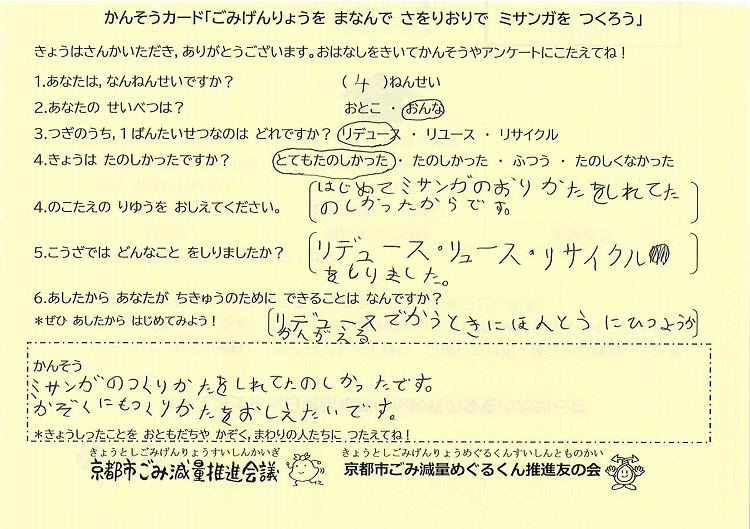 かんそうカード「ごみげんりょうを まなんで さをりおりで ミサンガを つくろう」
きょうはさんかいただき、ありがとうございます。おはなしをきいてかんそうやアンケートにこたえてね！
1.あなたは、なんねんせいですか？ （ 4 ）ねんせい
2.あなたの せいべつは？ おとこ ・ おんな
3.つぎのうち、1ばんたいせつなのは どれですか？ リデュース ・ リユース ・ リサイクル
4.きょうは たのしかったですか？ とてもたのしかった ・ たのしかった ・ ふつう ・ たのしくなかった
はじめてミサンガのおりかたをしれてた
4.のこたえの りゆうを おしえてください。 のしかったからです。
5.こうざでは どんなこと をしりましたか？ リデュース・リュース・リサイクル
をしりました。
6.あしたから あなたが ちきゅうのために できることは なんですか？
*ぜひ あしたから はじめてみよう！ リデュースでかうときにほんとうにひつようか
かんがえる
かんそう
ミサンガのつくりかたをしれてたのしかったです。
かぞくにもつくりかたをおしえたいです。
*きょうしったことを おともだちや かぞく、まわりの人たちに つたえてね！
きょうとしごみげんりょうすいしんかいぎ きょうとしごみげんりょうめぐるくんすいしんとものかい
京都市ごみ減量推進会議 京都市ごみ減量めぐるくん推進友の会